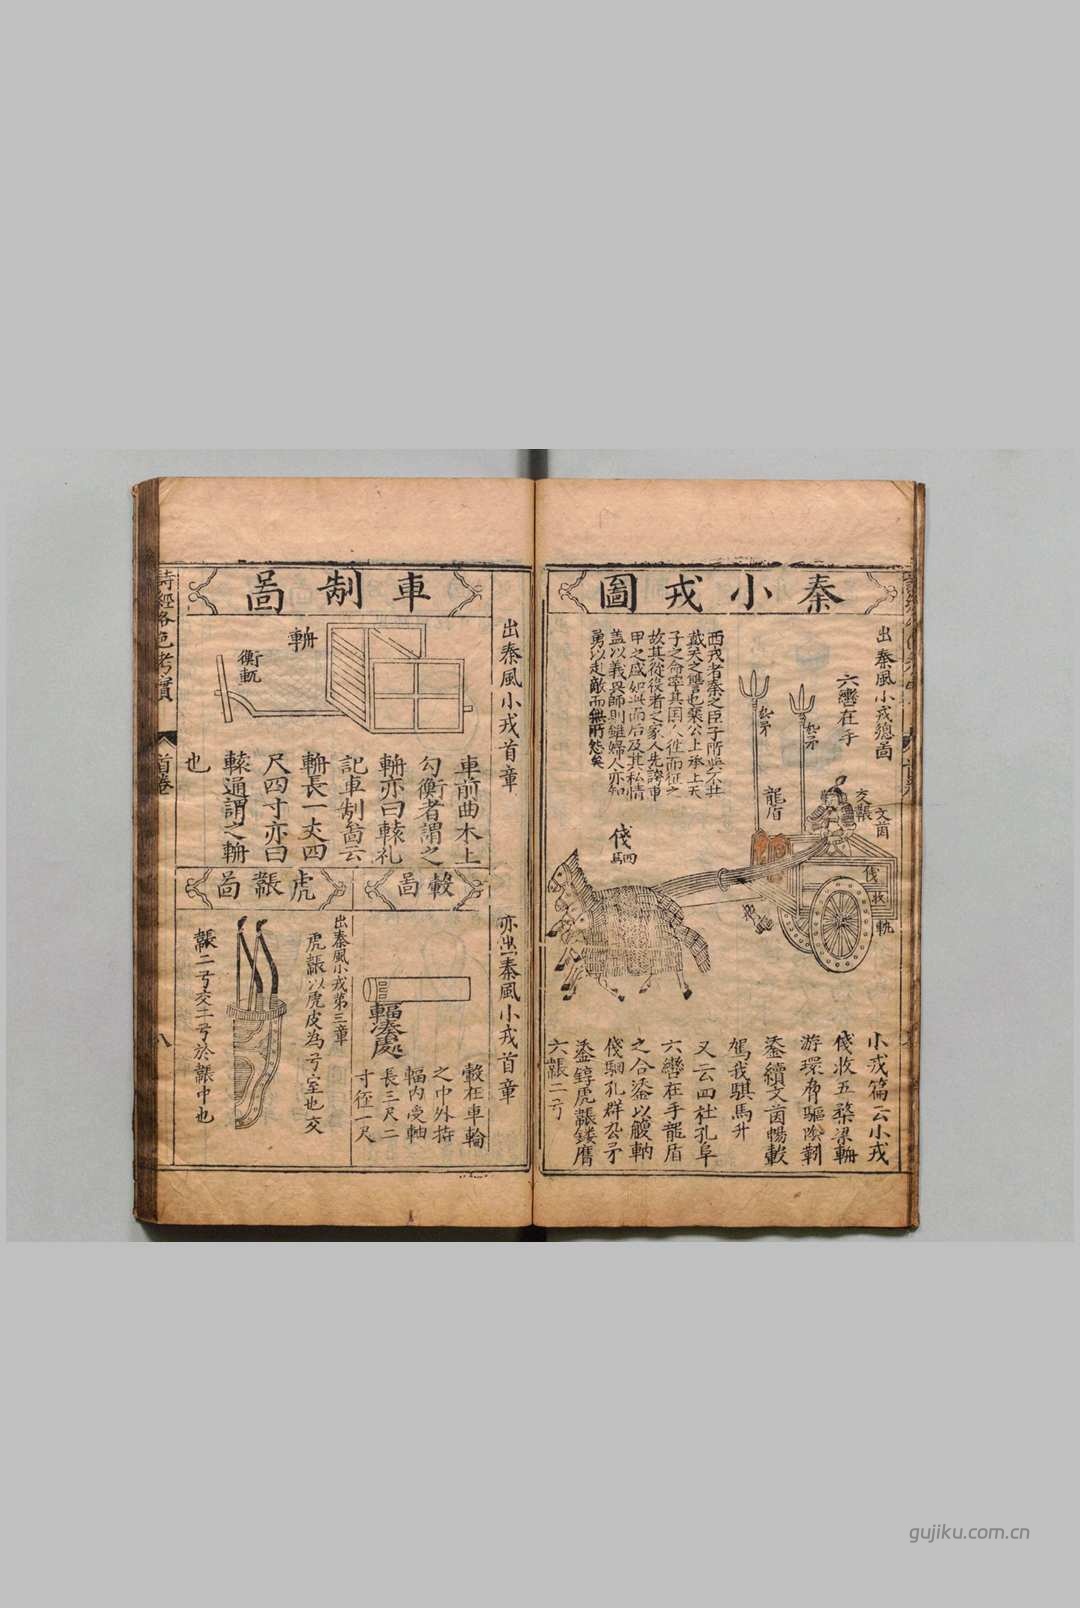 秦小戎圖
出秦風小戎總圖
六轡在手
西戎者秦之臣子所與不共
戴天之讐也襄公上承上天
子之命率其国人徃而征之
故其從役者之家人先誇車
甲之盛如此而后及其私情
盖以義興師則雖婦人亦知
勇以赴敵而無所怨矣
厹矛
厹矛
龍盾
交韔
文茵
俴駟
俴
收
軌
小戎篇云小戎
俴收五楘梁輈
游環脅驅陰靷
鋈續文茵暢轂
駕我騏馬廾
又云四牡孔阜
六轡在手龍盾
之合鋈以觼軜
俴駟孔群厹矛
鋈錞虎韔鏤膺
六韔二弓
車制啚
出秦風小戎首章
輈
衡軏
車前曲木上
勾衡者謂之
輈亦曰轅礼
記車制啚云
輈長一丈四
尺四寸亦曰
轅通謂之輈
也
轂啚
亦出秦風小戎首章
輻湊處
轂在車輪
之巾外持
輻内受軸
長三尺二
寸徑一尺
虎韔啚
出秦風小戎第三章
虎韔以虎皮為弓室也交
韔二弓交二弓於韔中也
詩經
考實
首卷
八
gujiku.com.cn